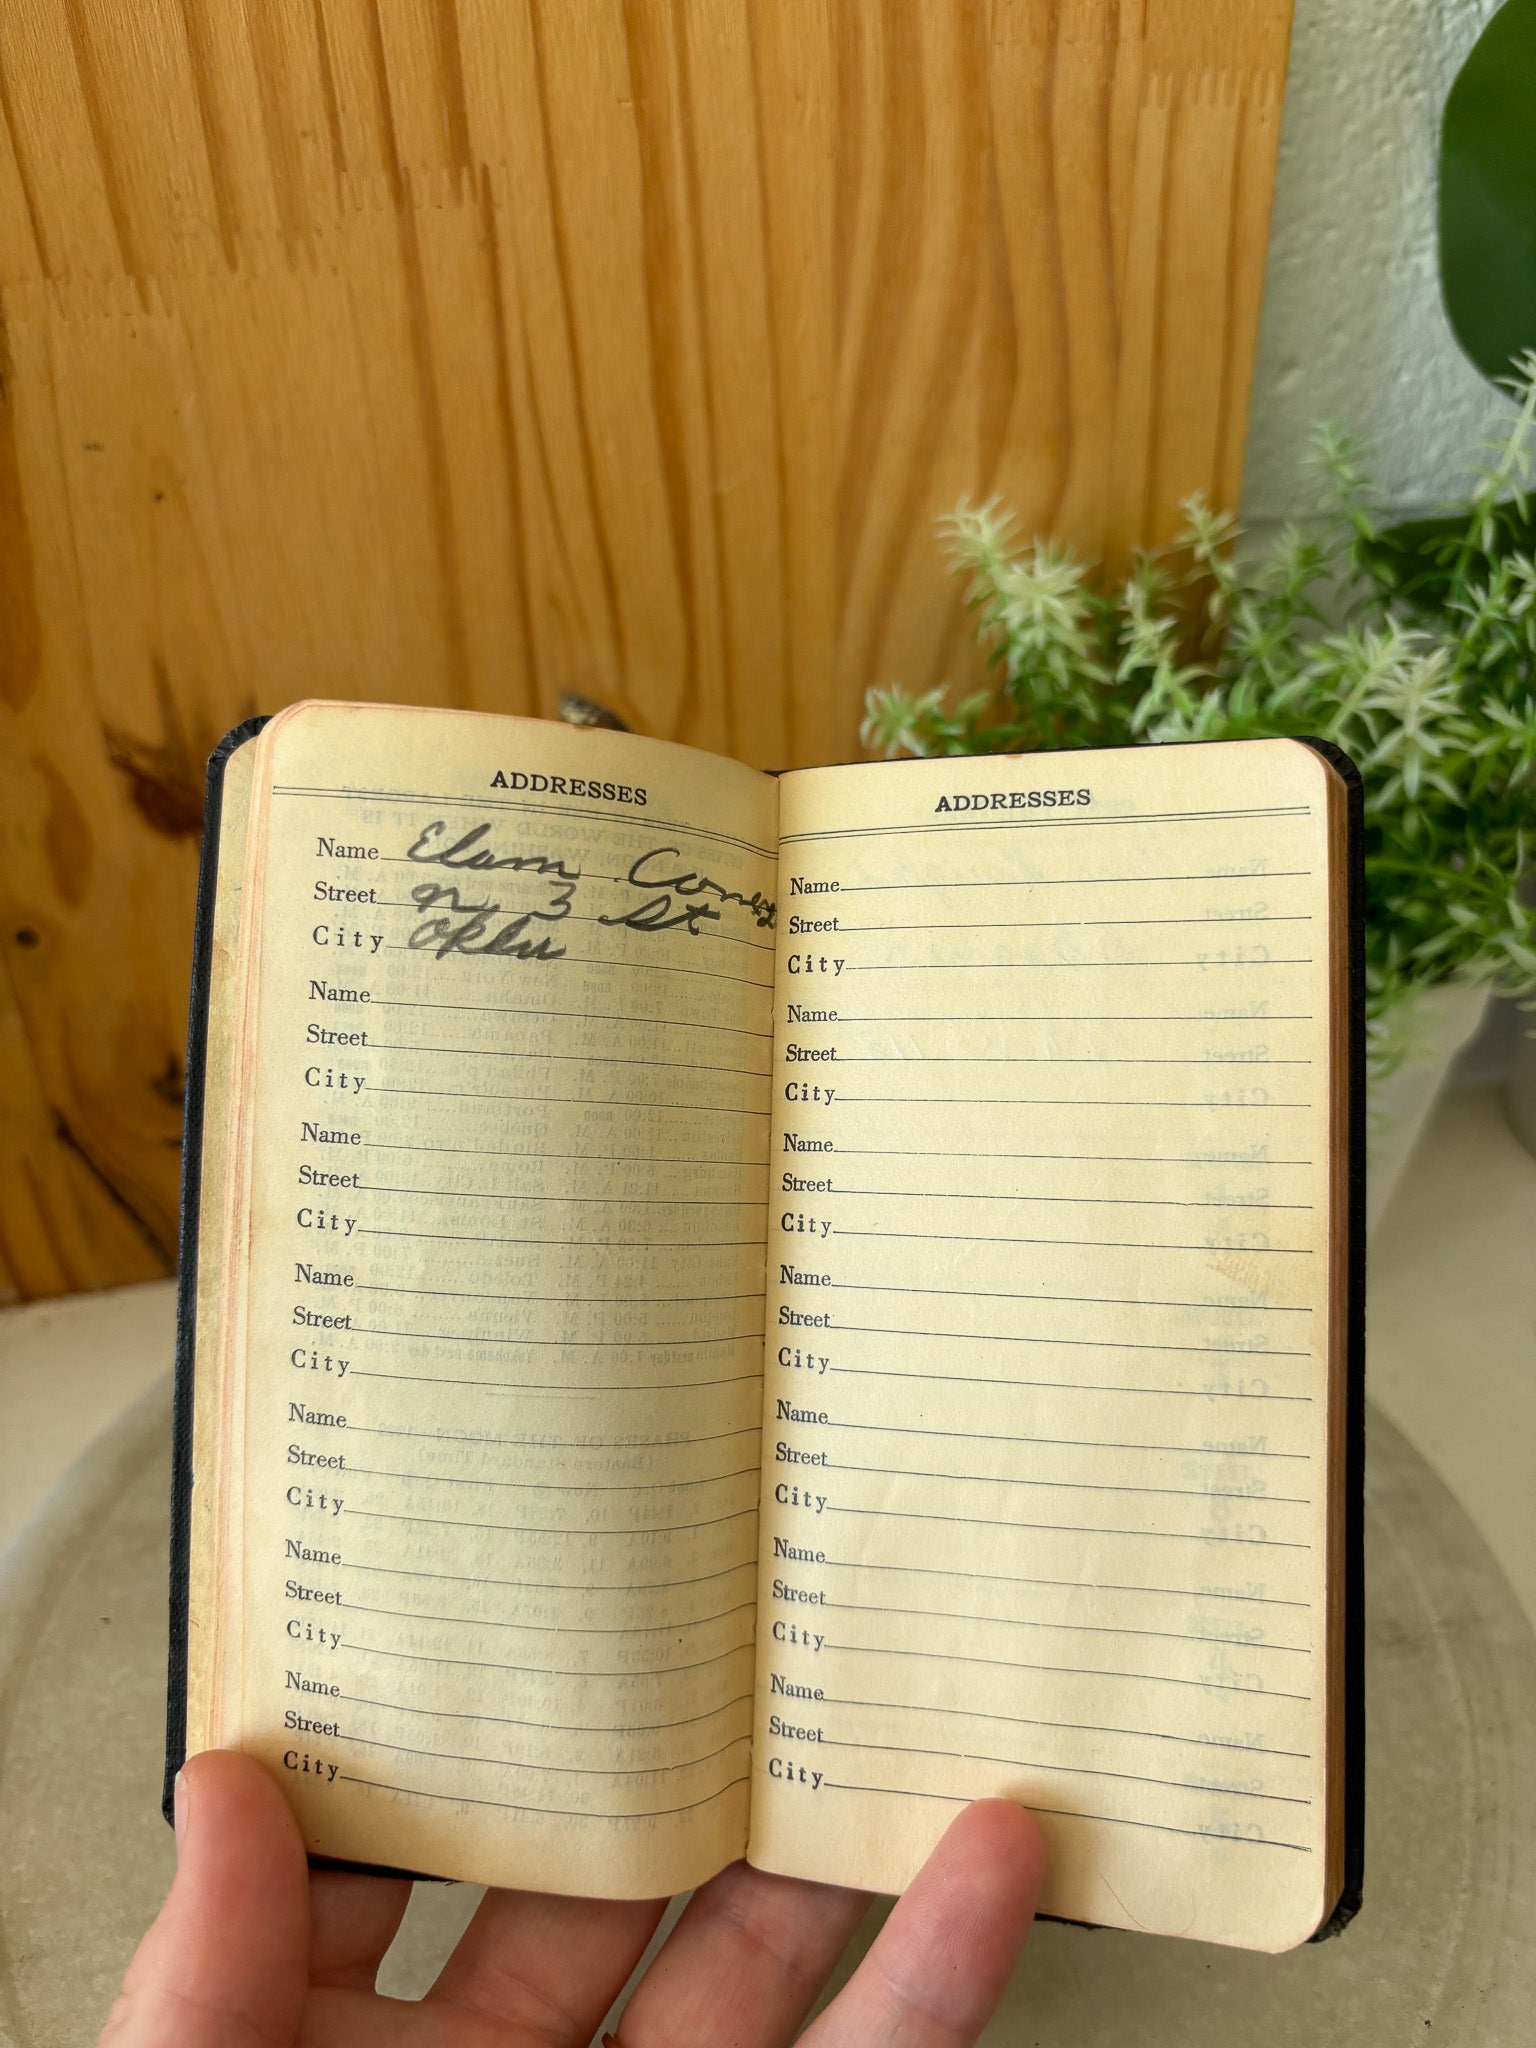 ADDRESSES
Name Elam
Street n. 3 St
City Okla
Name
Street
City
Name
Street
City
Name
Street
City
Name
Street
City
Name
Street
City
Name
Street
City
ADDRESSES
Name
Street
City
Name
Street
City
Name
Street
City
Name
Street
City
Name
Street
City
Name
Street
City
Name
Street
City